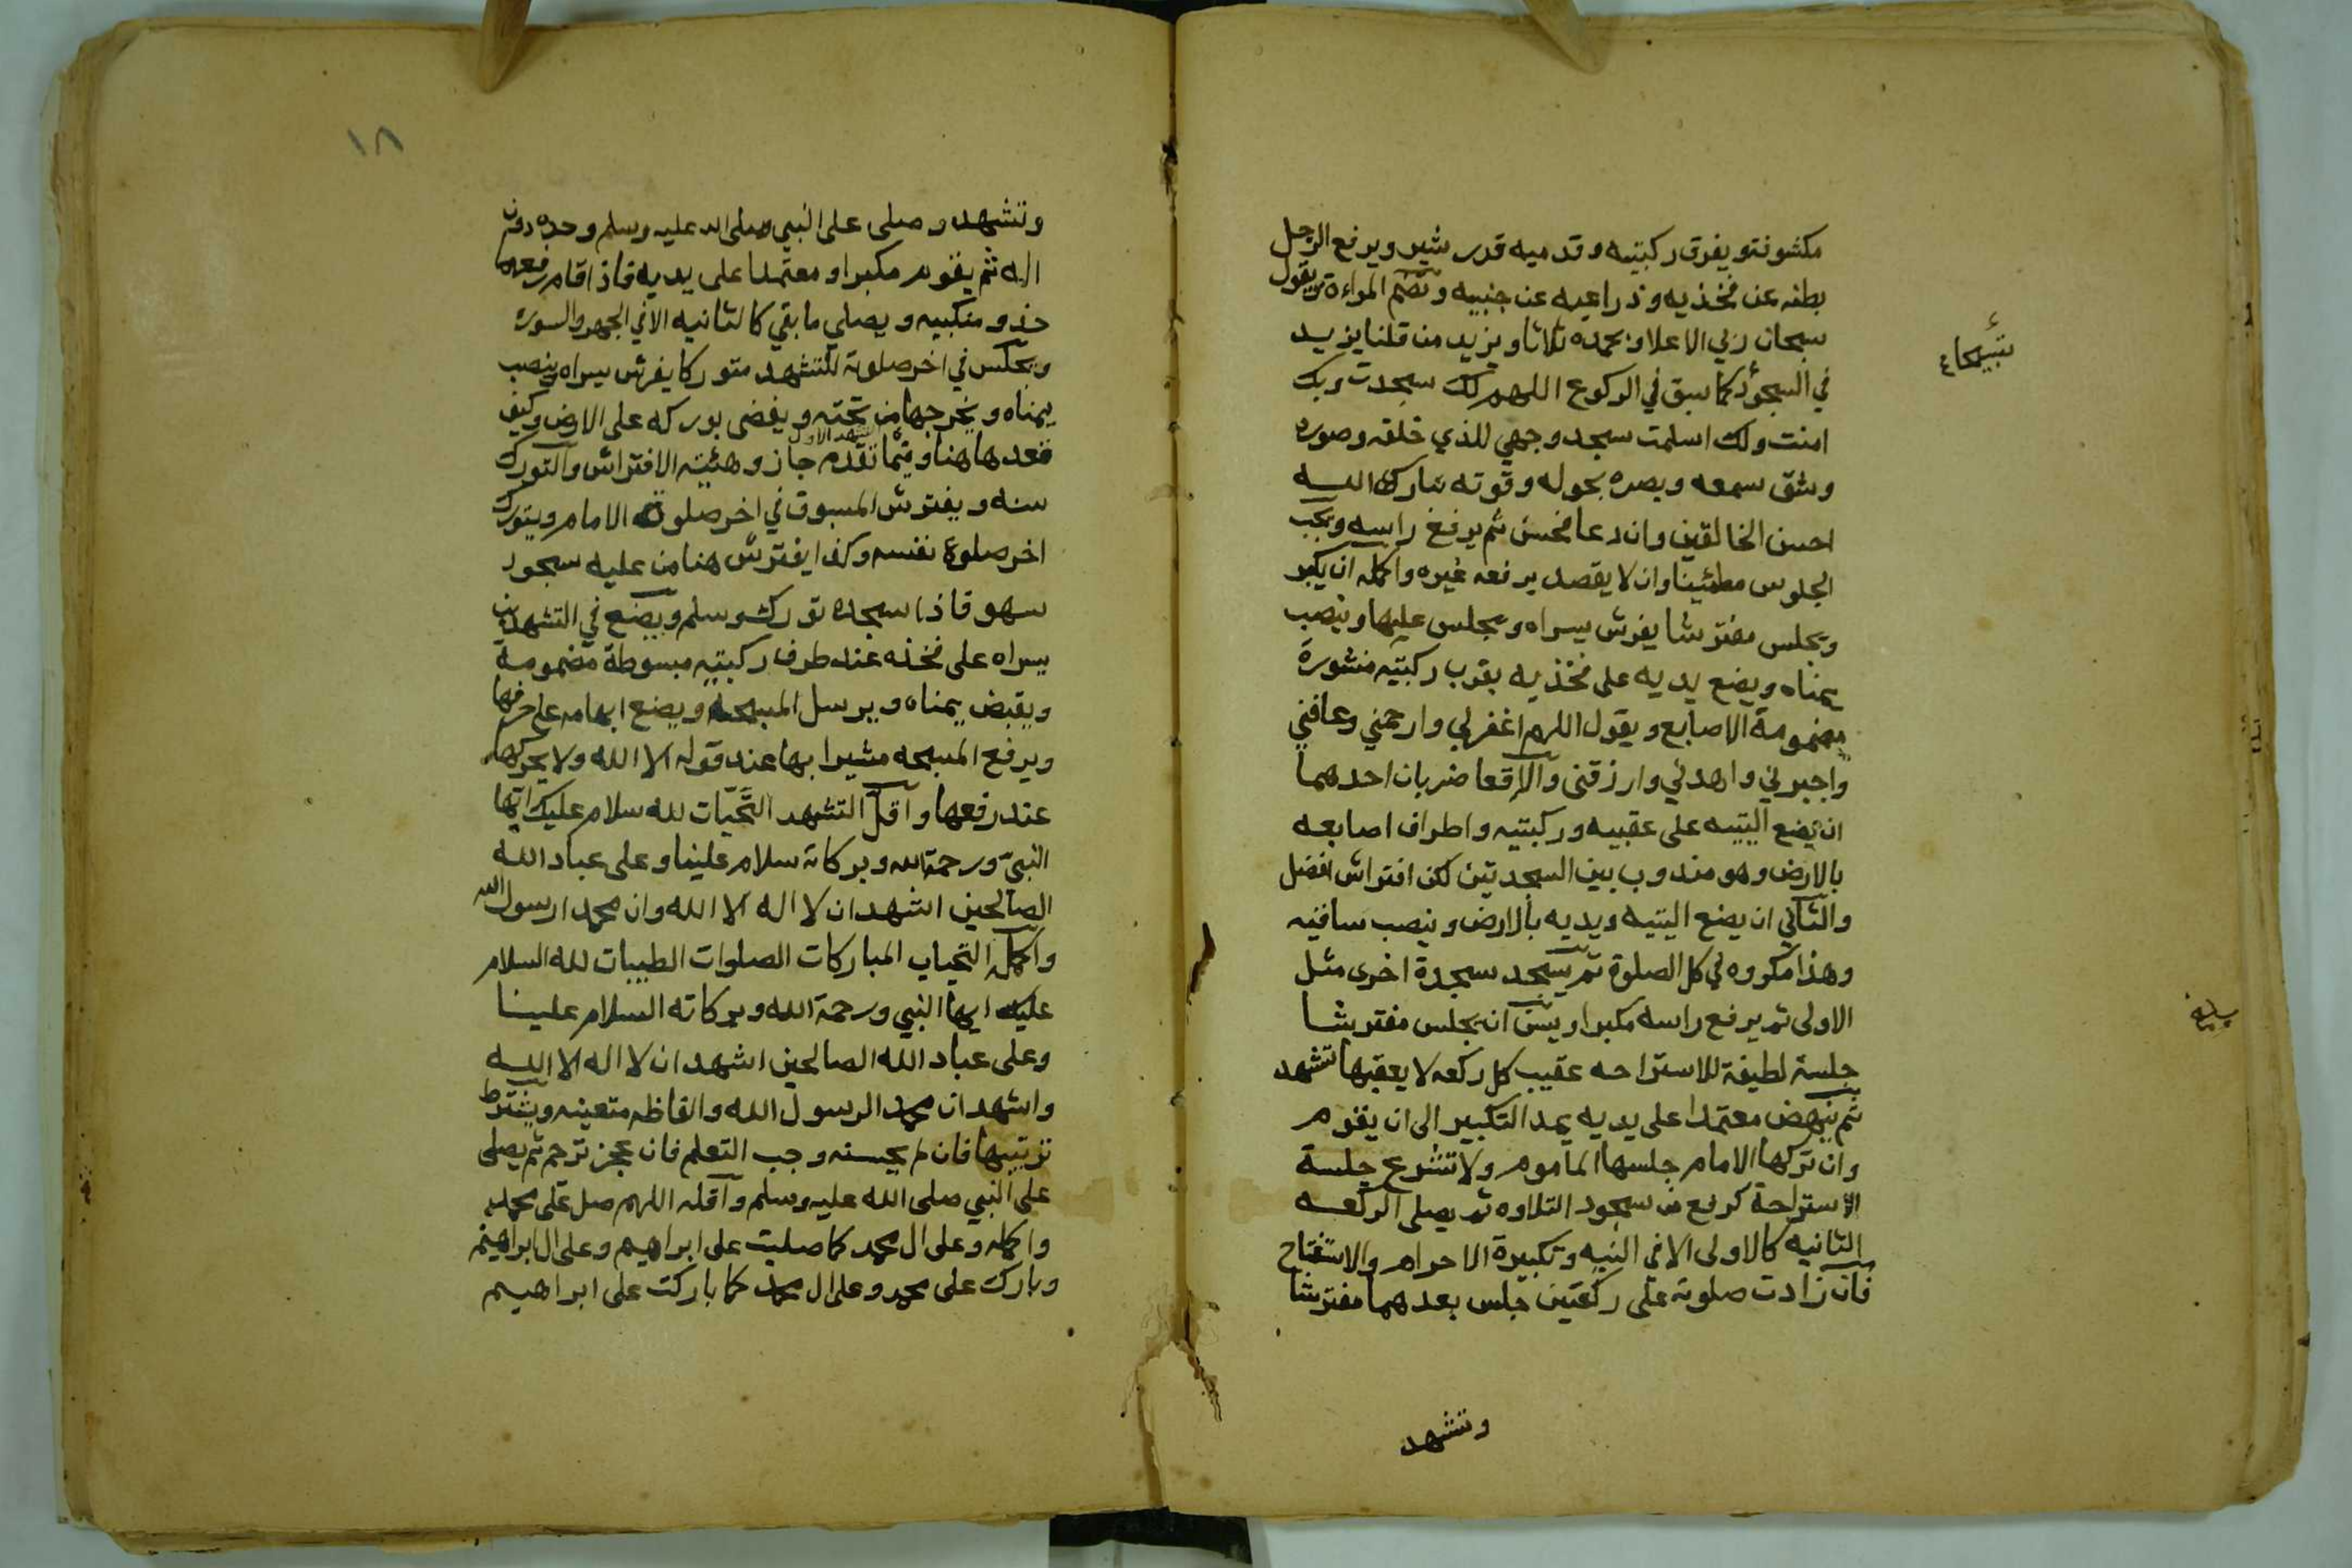 مكشوفتو يفرق ركبتيه وقدميه قدر شبر ويرفع الرجل
بطنه عن فخذيه وذراعيه عن جنبيه وتضم المراءة ويقول
سبحان ربي الاعلا وبحمده ثلاثا ويزيد من قلنا يزيد
في السجود كما سبق في الركوع اللهم لك سجدت وبك
امنت ولك اسلمت سجد وجهي للذي خلقه وصوره
وشق سمعه وبصره بحوله وقوته تبارك الله
احسن الخالقين وان دعا فحسن ثم يرفع راسه ويجب
الجلوس مطئينا وان لا يقصد برفعه غيره واكمله ان يكبر
ويجلس مفترشا يفرش يسراه ويجلس عليها وينصب
يمناه ويضع يديه على فخذيه بقرب ركبتيه منشورة
مضمومة الاصابع ويقول اللهم اغفر لي وارحمني وعافني
واجبرني واهدني وارزقني والاقعا ضربان احدهما
ان يضع اليتيه على عقبيه وركبتيه واطراف اصابعه
بالارض وهو مندوب بين السجدتين لكن افتراش افضل
والثاني ان يضع اليتيه ويديه بالارض وينصب ساقيه
وهذا مكروه في كل الصلوة ثم يسجد سجدة اخرى مثل
الاولى ثم يرفع راسه مكبرا ويسن ان يجلس مفترشا
جلسة لطيفة للاستراحه عقيب كل ركعه لا يعقبها تشهد
ثم ينهض معتمدا على يديه يمد التكبير الى ان يقوم
وان تركها الامام جلسها الماموم ولا تشرع جلسة
الاستراحة كرفع من سجود التلاوه ثم يصلى الركعه
الثانيه كالاولى الا في النيه وتكبيرة الاحرام والاستفتاح
فان زادت صلوته على ركعتين جلس بعدهما مفترشا
وتشهد
١٨
وتشهد وصلى على النبي صلى الله عليه وسلم وحده دون
اله ثم يقوم مكبرا ومعتمدا على يديه فاذا قام رفعهما
حذو منكبيه ويصلي ما بقي كالثانيه الا في الجهر والسوره
ويجلس في اخر صلوته للتشهد متوركا يفرش يسراه وينصب
يمناه ويخرجها من تحته ويفضى بوركه على الارض وكيف
التشهد الاول
قعدها هنا وفيما تقدم جاز وهيئة الافتراش والتورك
سنه ويفترش المسبوق في اخر صلوة الامام ويتورك
اخر صلوة نفسه وكذا يفترش هنا من عليه سجود
سهو فاذا سجده تورك وسلم ويضع في التشهدين
يسراه على فخذه عند طرف ركبتيه مبسوطة مضمومة
ويقبض يمناه ويرسل المسبحه ويضع ابهامه على حرفها
ويرفع المسبحه مشيرا بها عند قوله الا الله ولا يحركها
عند رفعها واقل التشهد التَّحيّات لله سلام عليك ايها
النبيّ ورحمة الله وبركاته سلام علينا وعلى عباد الله
الصالحين اشهد ان لا اله الا الله وان محمدا رسول الله
واكمله التحيات المباركات الصلوات الطيبات لله السلام
عليك ايها النبي ورحمة الله وبركاته السلام علينا
وعلى عباد الله الصالحين اشهد ان لا اله الا الله
واشهد ان محمد الرسول الله والفاظه متعينه ويشترط
ترتيبها فان لم يحسنه وجب التعلم فان عجز ترجم ثم يصلى
على النبي صلى الله عليه وسلم واقله اللهم صل على محمد
واكمله وعلى ال محمد كما صليت على ابراهيم وعلى ال ابراهيم
وبارك على محمد وعلى ال محمد كما باركت على ابراهيم